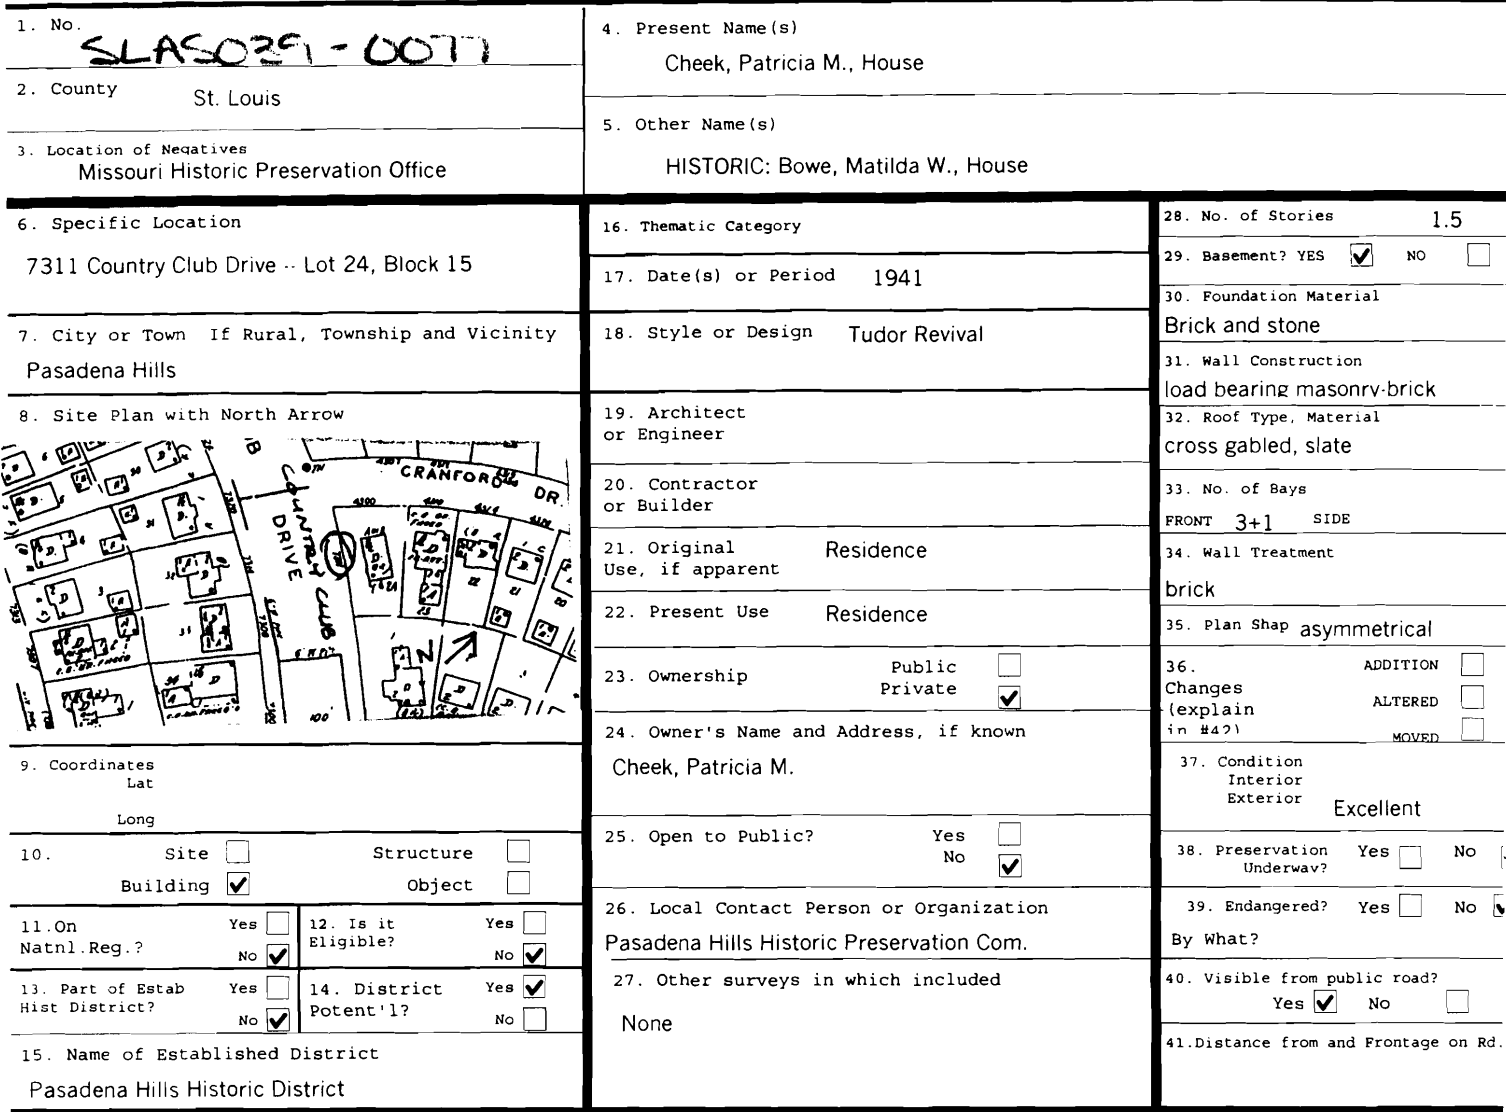 1. No.
SLAS029-0077
2. County
St. Louis
3. Location of Negatives
Missouri Historic Preservation Office
4. Present Name(s)
Cheek, Patricia M., House
5. Other Name(s)
HISTORIC: Bowe, Matilda W., House
6. Specific Location
7311 Country Club Drive -- Lot 24, Block 15
7. City or Town If Rural, Township and Vicinity
Pasadena Hills
8. Site Plan with North Arrow
CRANFORD DR.
COUNTRY CLUB
DRIVE
N
9. Coordinates
Lat
Long
10. Site Structure
Building Object
11.On Yes
Natnl.Reg.? No
12. Is it Yes
Eligible? No
13. Part of Estab Yes
Hist District? No
14. District Yes
Potent'l? No
15. Name of Established District
Pasadena Hills Historic District
16. Thematic Category
17. Date(s) or Period 1941
18. Style or Design Tudor Revival
19. Architect
or Engineer
20. Contractor
or Builder
21. Original Residence
Use, if apparent
22. Present Use Residence
23. Ownership Public
Private
24. Owner's Name and Address, if known
Cheek, Patricia M.
25. Open to Public? Yes
No
26. Local Contact Person or Organization
Pasadena Hills Historic Preservation Com.
27. Other surveys in which included
None
28. No. of Stories 1.5
29. Basement? YES NO
30. Foundation Material
Brick and stone
31. Wall Construction
load bearing masonry-brick
32. Roof Type, Material
cross gabled, slate
33. No. of Bays
FRONT 3+1 SIDE
34. Wall Treatment
brick
35. Plan Shap asymmetrical
36. ADDITION
Changes
(explain ALTERED
in #42) MOVED
37. Condition
Interior
Exterior Excellent
38. Preservation Yes No
Underway?
39. Endangered? Yes No
By What?
40. Visible from public road?
Yes No
41.Distance from and Frontage on Rd.